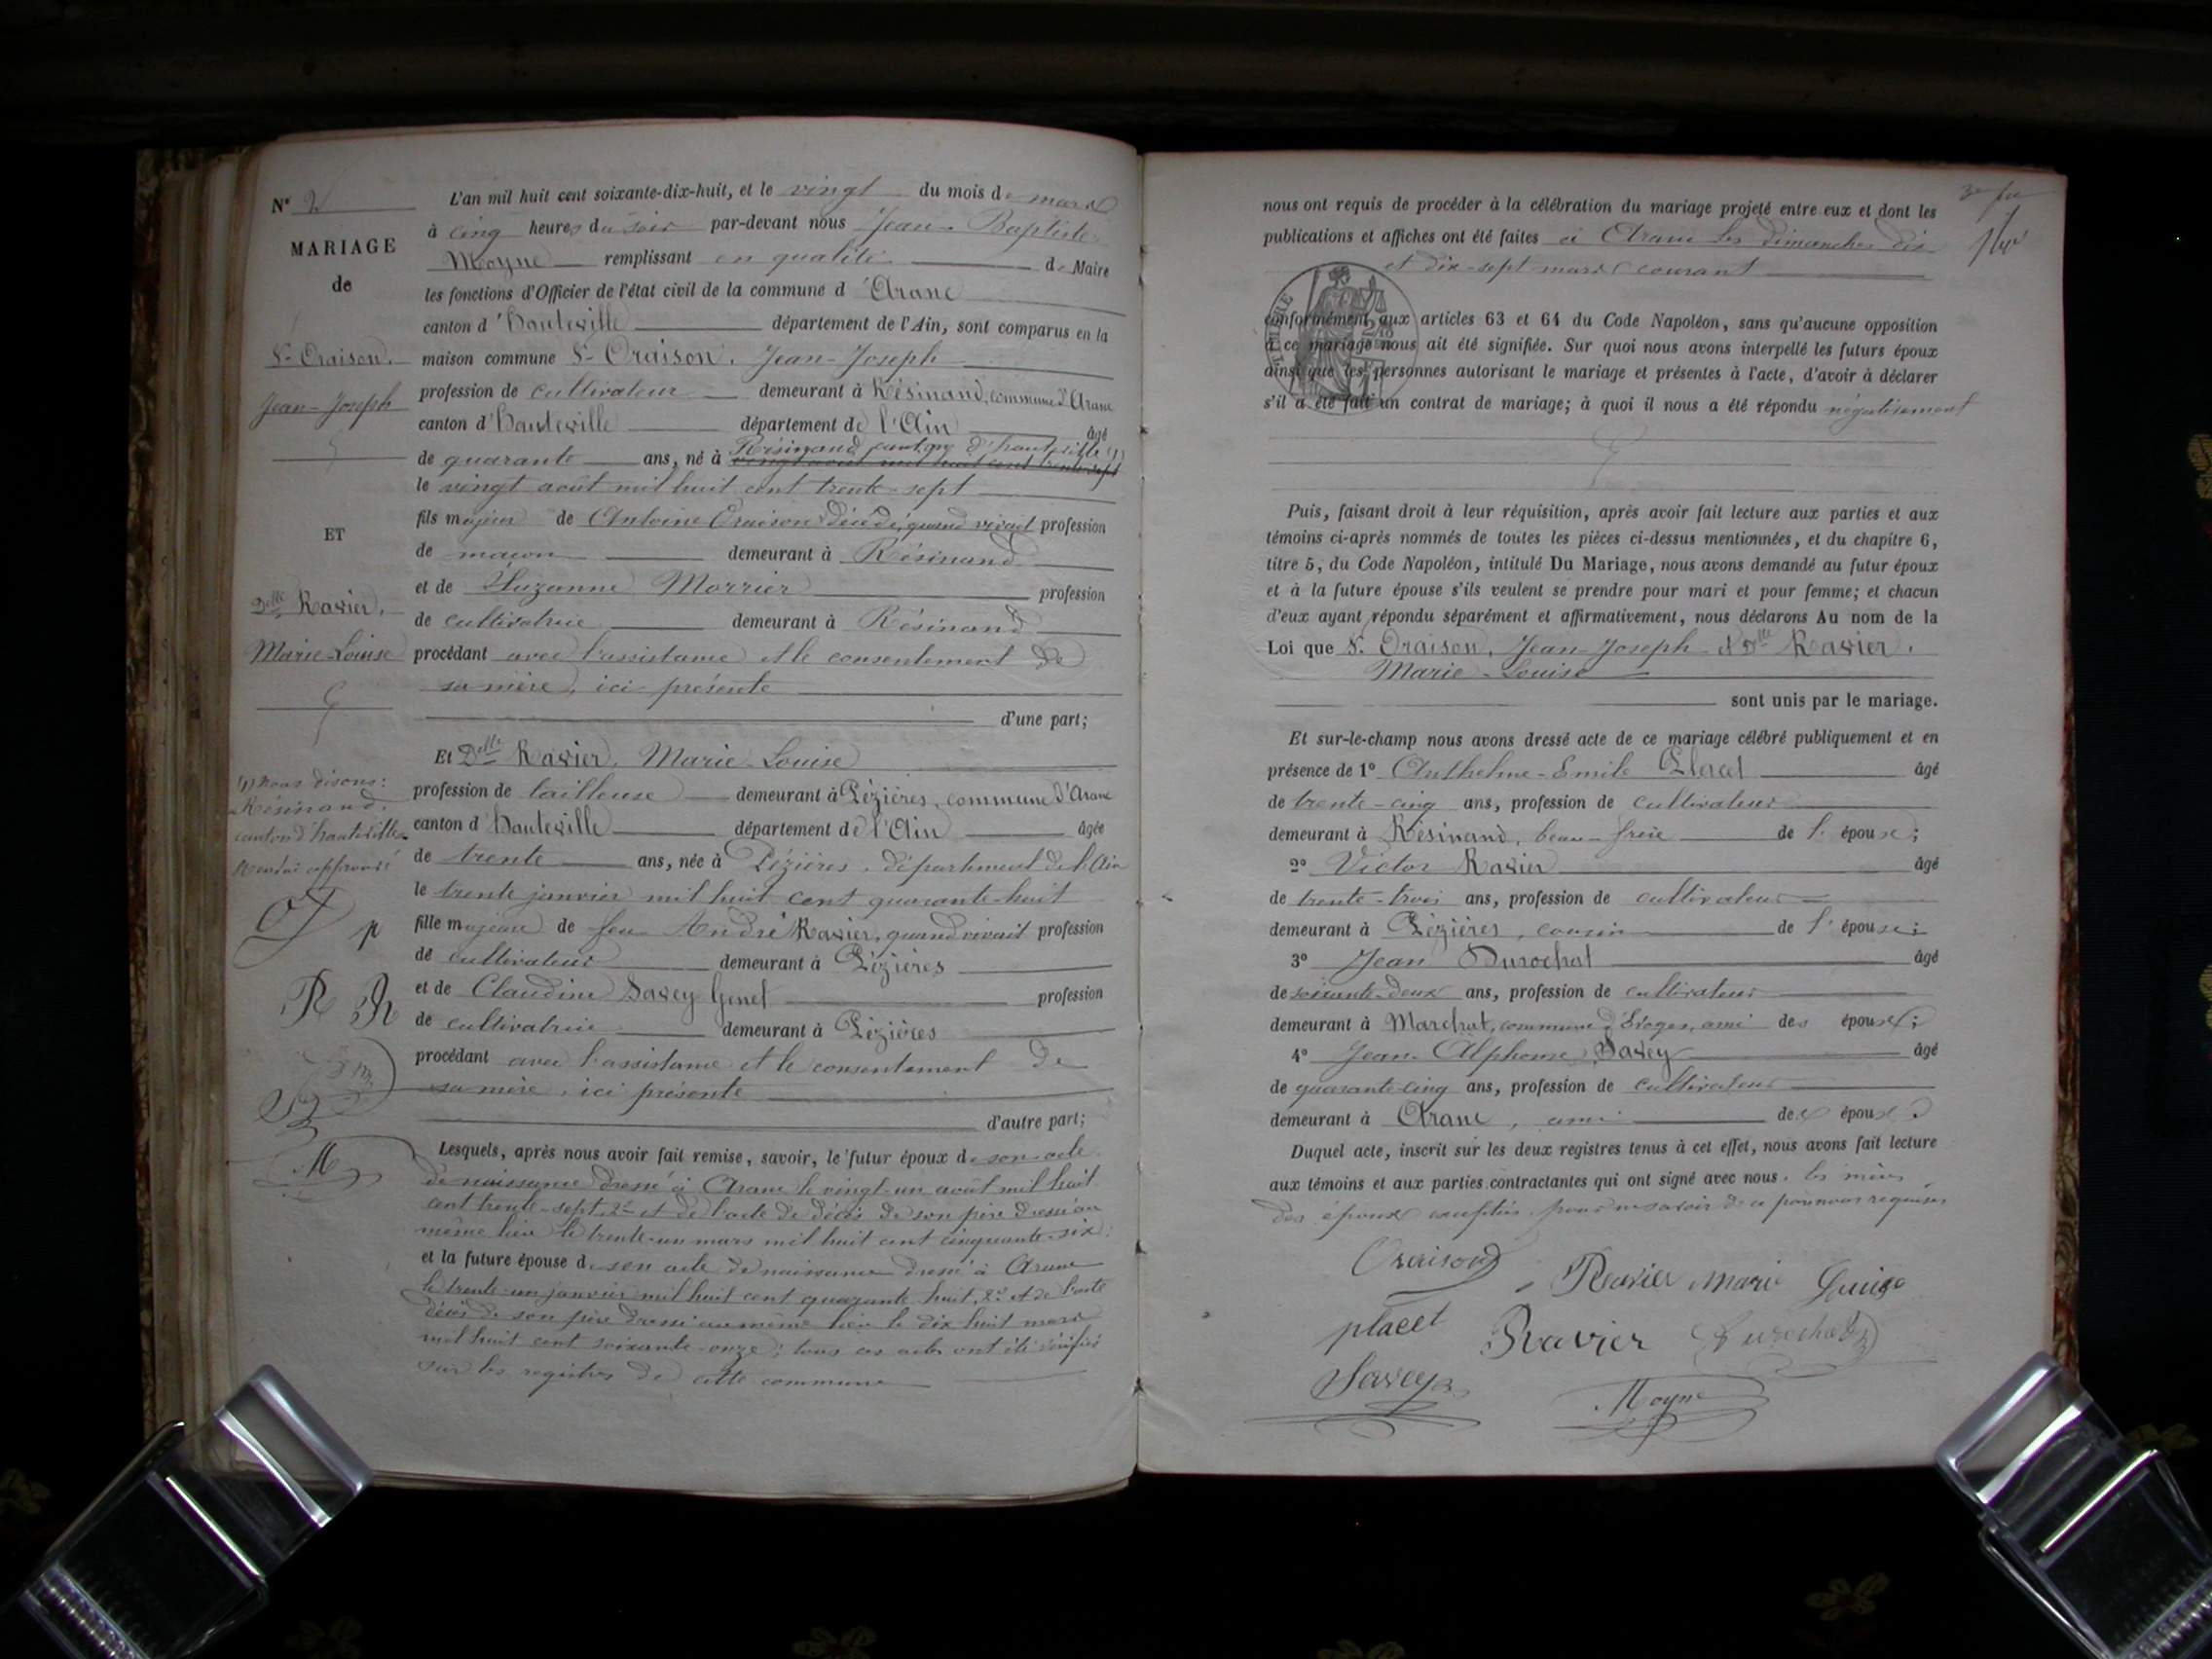 N° 2
MARIAGE
de
Sr Oraison.
Jean-Joseph
ET
Delle Ravier,
Marie-Louise
(1) nous disons:
Résinand,
canton d'hauteville
Renvoi approuvé
L'an mil huit cent soixante-dix-huit, et le vingt du mois de mars
à cinq heures du soir par-devant nous Jean-Baptiste
Moyne remplissant en qualité de Maire
les fonctions d'Officier de l'état civil de la commune d'Aranc
canton d'Hauteville département de l'Ain, sont comparus en la
maison commune Sr Oraison, Jean-Joseph
profession de cultivateur demeurant à Résinand, commune d'Aranc
canton d'Hauteville département de l'Ain âgé
de quarante ans, né à Résinand canton d'hauteville (1)
le vingt août mil huit cent trente-sept
fils majeur de Antoine Oraison décédé, quand vivait profession
de maçon demeurant à Résinand
et de Suzanne Morrier profession
de cultivatrice demeurant à Résinand
procédant avec l'assistance et le consentement de
sa mère, ici présente
d'une part;
Et Delle Ravier, Marie-Louise
profession de tailleuse demeurant à Pézières, commune d'Aranc
canton d'Hauteville département de l'Ain âgée
de trente ans, née à Pézières, département de l'Ain
le trente janvier mil huit cent quarante-huit
fille majeure de feu André Ravier, quand vivait profession
de cultivateur demeurant à Pézières
et de Claudine Savey Genet profession
de cultivatrice demeurant à Pézières
procédant avec l'assistance et le consentement de
sa mère, ici présente
d'autre part;
Lesquels, après nous avoir fait remise, savoir, le futur époux de son acte
de naissance dressé à Aranc le vingt-un août mil huit
cent trente-sept, 2° et de l'acte de décès de son père dressé au
même lieu le trente-un mars mil huit cent cinquante-six;
et la future épouse de son acte de naissance dressé à Aranc
le trente-un janvier mil huit cent quarante-huit, 2° et de l'acte
décès de son père dressé au même lieu le dix-huit mars
mil huit cent soixante-onze; tous ces actes ont été vérifiés
sur les registres de cette commune
nous ont requis de procéder à la célébration du mariage projeté entre eux et dont les
publications et affiches ont été faites à Aranc les dimanches dix
et dix-sept mars courant
conformément aux articles 63 et 64 du Code Napoléon, sans qu'aucune opposition
à ce mariage nous ait été signifiée. Sur quoi nous avons interpellé les futurs époux
ainsi que les personnes autorisant le mariage et présentes à l'acte, d'avoir à déclarer
s'il a été fait un contrat de mariage; à quoi il nous a été répondu négativement
Puis, faisant droit à leur réquisition, après avoir fait lecture aux parties et aux
témoins ci-après nommés de toutes les pièces ci-dessus mentionnées, et du chapitre 6,
titre 5, du Code Napoléon, intitulé Du Mariage, nous avons demandé au futur époux
et à la future épouse s'ils veulent se prendre pour mari et pour femme; et chacun
d'eux ayant répondu séparément et affirmativement, nous déclarons Au nom de la
Loi que Sr Oraison, Jean-Joseph et Delle Ravier,
Marie-Louise
sont unis par le mariage.
Et sur-le-champ nous avons dressé acte de ce mariage célébré publiquement et en
présence de 1° Anthelme-Emile Placet âgé
de trente-cinq ans, profession de cultivateur
demeurant à Résinand, beau-frère de l'épouse;
2° Victor Ravier âgé
de trente-trois ans, profession de cultivateur
demeurant à Pézières, cousin de l'épouse;
3° Jean Durochat âgé
de soixante-deux ans, profession de cultivateur
demeurant à Marchat, commune d'Evoges, ami des époux;
4° Jean-Alphonse Savey âgé
de quarante-cinq ans, profession de cultivateur
demeurant à Aranc, ami des époux.
Duquel acte, inscrit sur les deux registres tenus à cet effet, nous avons fait lecture
aux témoins et aux parties contractantes qui ont signé avec nous, les mères
des époux exceptées pour ne savoir de ce par nous requises
Oraison
Ravier Marie Louise
placet
Ravier
Durochat
Savey
Moyne